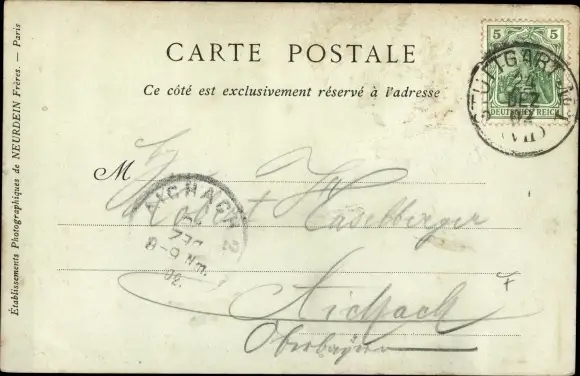 CARTE POSTALE
Ce côté est exclusivement réservé à l'adresse
Établissements Photographiques de NEURDEIN Frères. — Paris
5 5
DEUTSCHES REICH
STUTTGART
24
DEZ
02
VII
M
AICHACH
24
DEZ
8-9 Nm.
02.
2
Robert Haselberger
Aichach
Oberbayern